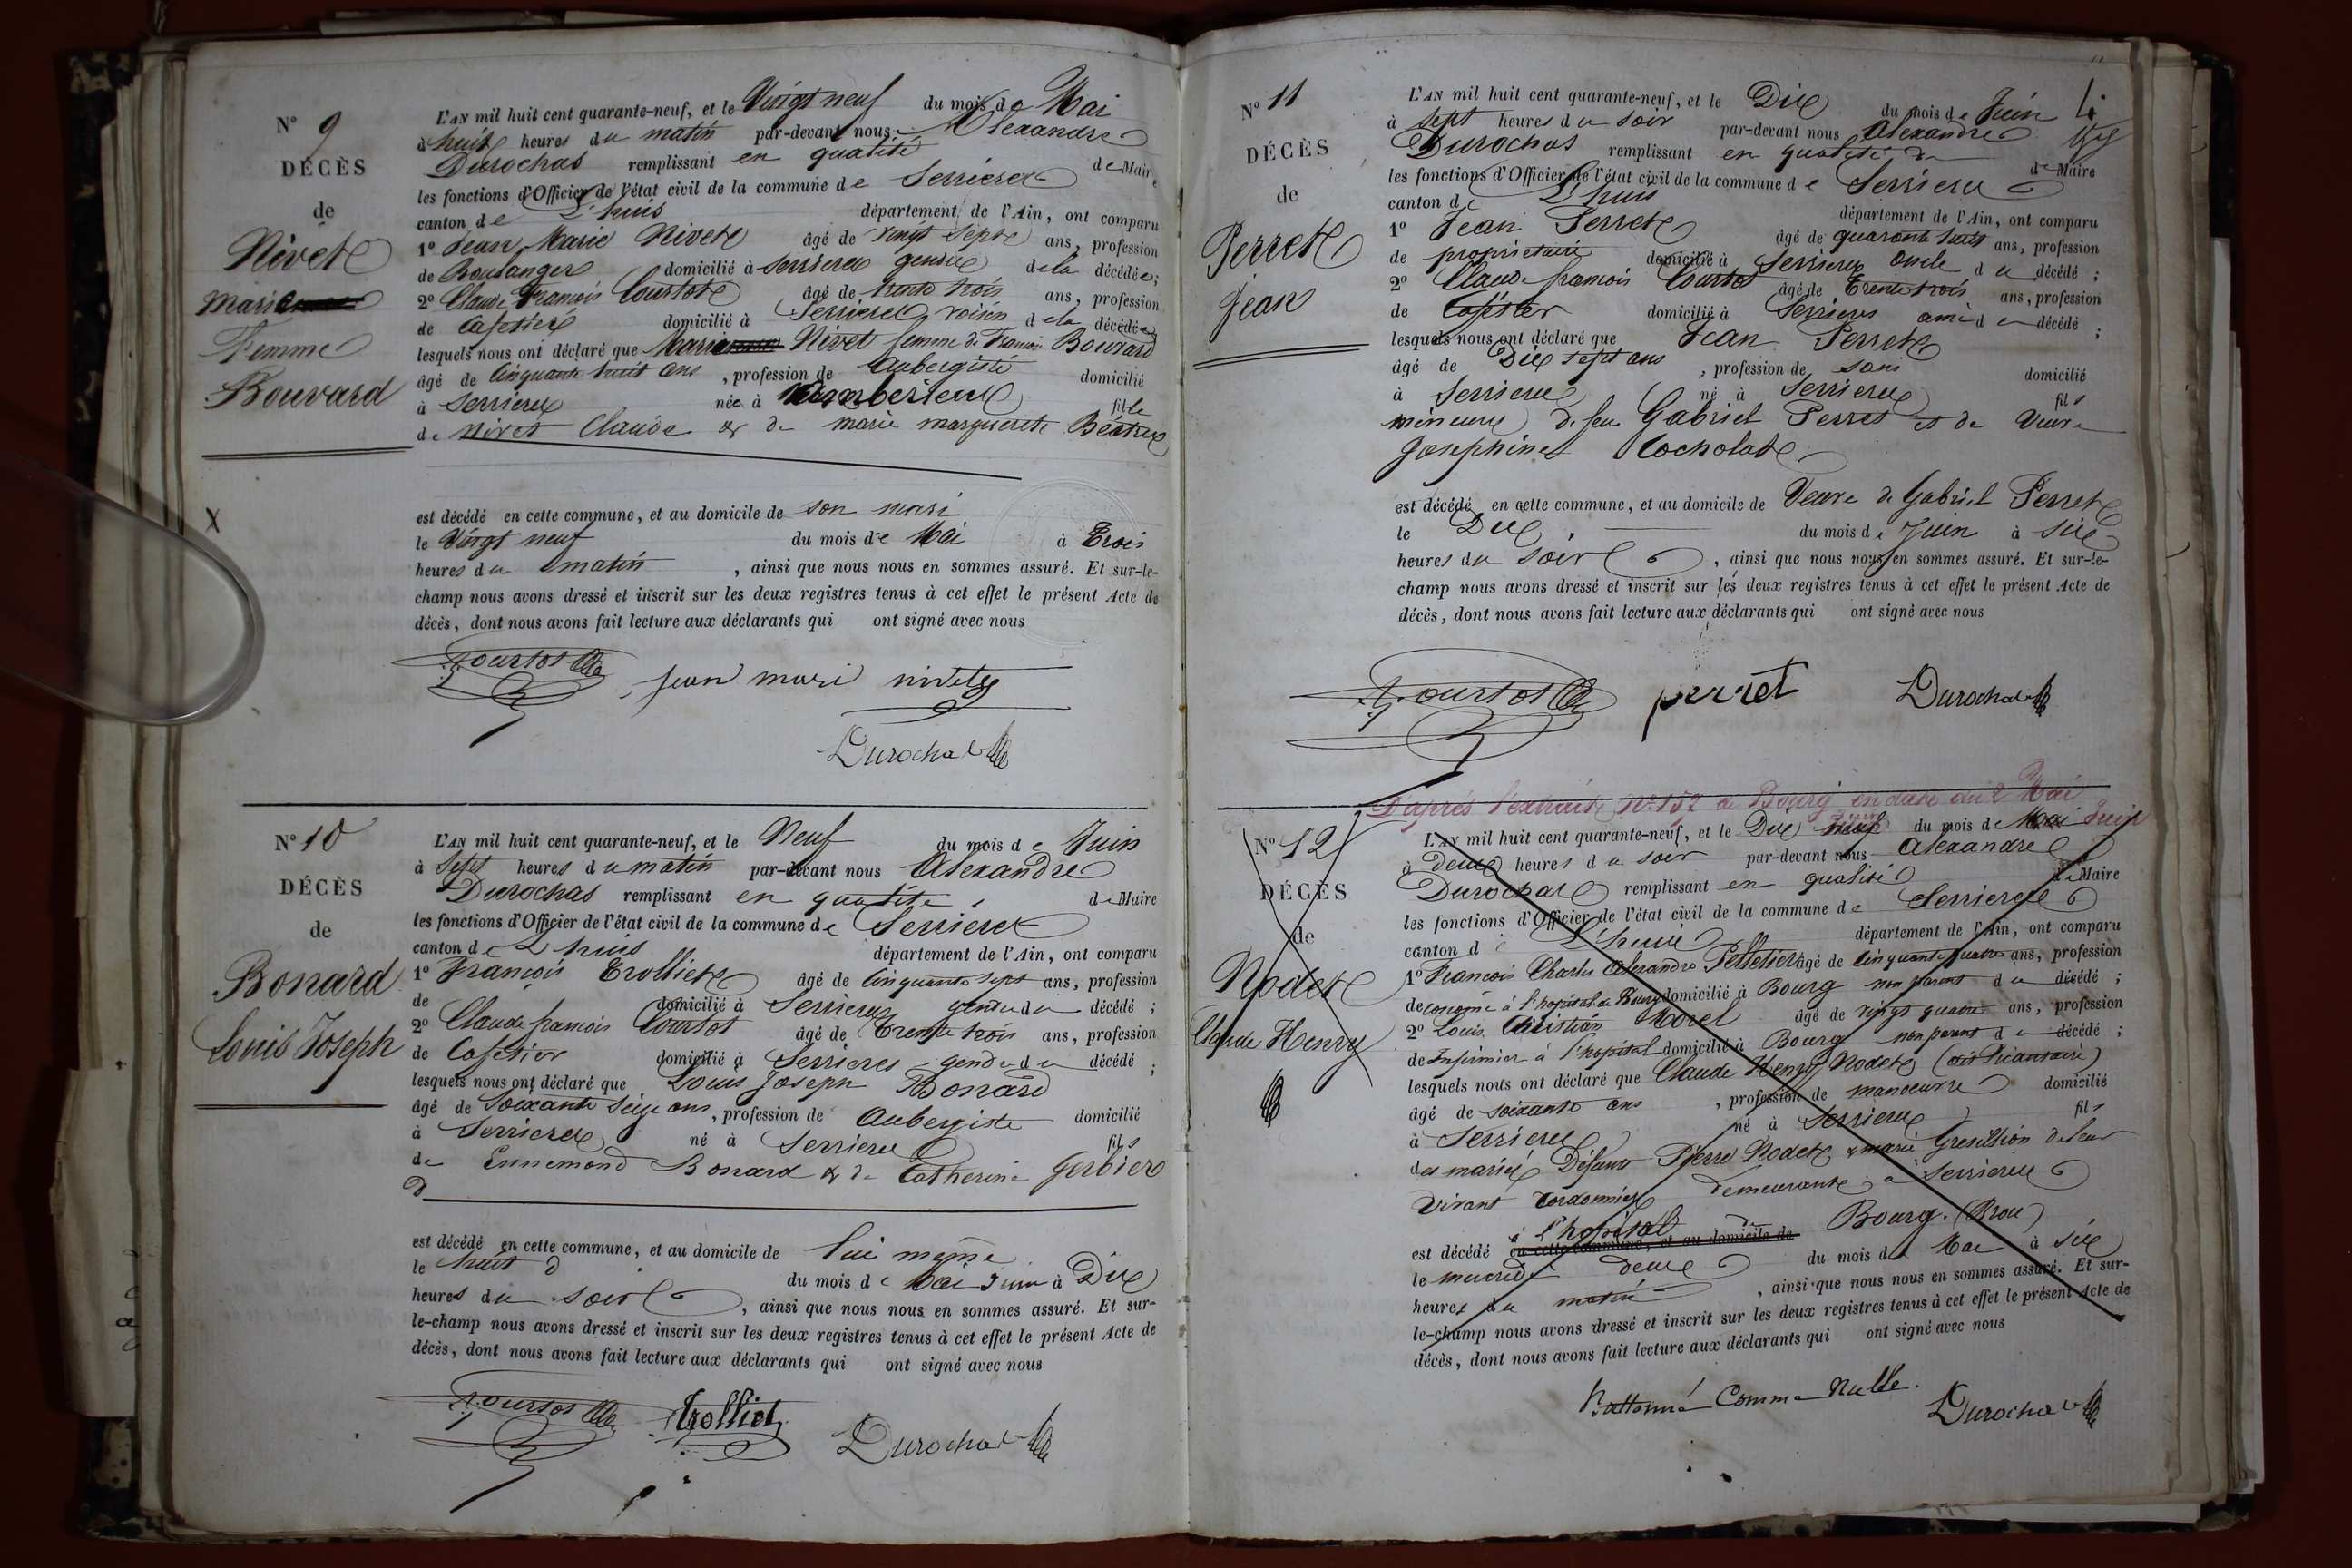 N° 9
DÉCÈS
de
Nivet
Marie
Femme
Bouvard
L'AN mil huit cent quarante-neuf, et le Vingt neuf du mois de Mai
à huit heures du matin par-devant nous Alexandre
Durochas remplissant en qualité de Maire
les fonctions d'Officier de l'état civil de la commune de Serrieres
canton de L'huis département de l'Ain, ont comparu
1° Jean Marie Nivet âgé de vingt sept ans, profession
de Boulanger domicilié à Serrieres de la décédée;
2° Claude François Courtot âgé de trente trois ans, profession
de Cafetier domicilié à Serrieres voisin de la décédée
lesquels nous ont déclaré que Marie Nivet femme de François Bouvard
âgé de Cinquante huit ans, profession de Aubergiste domicilié
à Serrieres née à fille
de Nivet Claude & de marie marguerite Béatrix
est décédé en cette commune, et au domicile de son mari
le Vingt neuf du mois de Mai à Trois
heures du matin, ainsi que nous nous en sommes assuré. Et sur-le-
champ nous avons dressé et inscrit sur les deux registres tenus à cet effet le présent Acte de
décès, dont nous avons fait lecture aux déclarants qui ont signé avec nous
Courtot jean mari nivet
Durochat
N° 10
DÉCÈS
de
Bonard
Louis Joseph
L'AN mil huit cent quarante-neuf, et le Neuf du mois de Juin
à Sept heures du matin par-devant nous Alexandre
Durochas remplissant en qualité de Maire
les fonctions d'Officier de l'état civil de la commune de Serrieres
canton de L'huis département de l'Ain, ont comparu
1° François Trolliet âgé de Cinquante sept ans, profession
de domicilié à Serrieres gendre du décédé ;
2° Claude françois Courtot âgé de Trente trois ans, profession
de Cafetier domicilié à Serrieres gendre du décédé ;
lesquels nous ont déclaré que Louis Joseph Bonard
âgé de Soixante Seize ans, profession de Aubergiste domicilié
à Serrieres né à Serrieres fils
de Ennemond Bonard & de Catherine Gerbier
est décédé en cette commune, et au domicile de lui même
le huit du mois de Mai Juin à Dix
heures du soir, ainsi que nous nous en sommes assuré. Et sur-
le-champ nous avons dressé et inscrit sur les deux registres tenus à cet effet le présent Acte de
décès, dont nous avons fait lecture aux déclarants qui ont signé avec nous
Courtot Trolliet Durochat
N° 11
DÉCÈS
de
Perret
Jean
L'AN mil huit cent quarante-neuf, et le Dix du mois de Juin
à Sept heures du soir par-devant nous Alexandre
Durochas remplissant en qualité de de Maire
les fonctions d'Officier de l'état civil de la commune de Serrieres
canton de L'huis département de l'Ain, ont comparu
1° Jean Perret âgé de quarante huit ans, profession
de propriétaire domicilié à Serrieres oncle du décédé ;
2° Claude françois Courtot âgé de Trente trois ans, profession
de Cafetier domicilié à Serrieres ami du décédé ;
lesquels nous ont déclaré que Jean Perret
âgé de Dix sept ans, profession de sans domicilié
à Serrieres né à Serrieres fils
mineure de feu Gabriel Perret et de Veuve
Josephine
est décédé en cette commune, et au domicile de Veuve de Gabriel Perret
le Dix du mois de Juin à six
heures du soir, ainsi que nous nous en sommes assuré. Et sur-le-
champ nous avons dressé et inscrit sur les deux registres tenus à cet effet le présent Acte de
décès, dont nous avons fait lecture aux déclarants qui ont signé avec nous
Courtot perret Durochat
D'après l'extrait N° 152 de Bourg en date du 2 Mai
N° 12
DÉCÈS
de
Nodet
Claude Henry
L'AN mil huit cent quarante-neuf, et le Dix neuf du mois de Mai Juin
à deux heures du soir par-devant nous Alexandre
Durochat remplissant en qualité de Maire
les fonctions d'Officier de l'état civil de la commune de Serrieres
canton d L'huis département de l'Ain, ont comparu
1° François Charles Alexandre Pelletier âgé de Cinquante quatre ans, profession
de econome à l'hopital de Bourg domicilié à Bourg non parent du décédé ;
2° Louis Christian Morel âgé de vingt quatre ans, profession
de Infirmier à l'hopital domicilié à Bourg non parent du décédé ;
lesquels nous ont déclaré que Claude Henry Nodet
âgé de soixante ans, profession de manoeuvre domicilié
à Serrieres né à Serrieres fils
des mariés Défunts Pierre Nodet & marie de leur
vivant Cordonnier demeurants à Serrieres
est décédé à l'hopital en cette commune, et au domicile de de Bourg. (Brou)
le mercredi deux du mois de Mai à six
heures du matin, ainsi que nous nous en sommes assuré. Et sur-
le-champ nous avons dressé et inscrit sur les deux registres tenus à cet effet le présent Acte de
décès, dont nous avons fait lecture aux déclarants qui ont signé avec nous
Battonné Comme Nulle.
Durochat